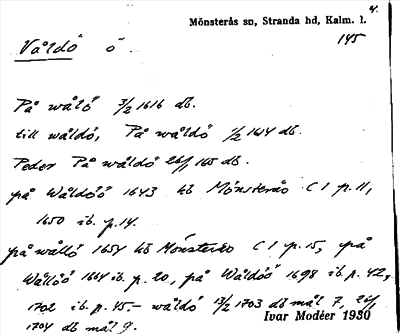 4.
Mönsterås sn, Stranda hd, Kalm. l.
Våldö ö.
145
På wålö 3/2 1616 db.
till wåldö, På wåldö 1/2 1614 db.
Peder På wåldö 26/1 165 db.
på Wåldöö 1643 kb Mönsterås C I p. 11,
1650 ib. p. 14.
på wållö 1654 kb Mönsterås C I p. 15, på
Wållöö 1664 ib. p. 20, på Wåldöö 1698 ib p. 42,
1702 ib. p. 45. – wåldö 13/2 1703 db mål 7, 26/1
1704 db mål 9.
Ivar Modéer 1930